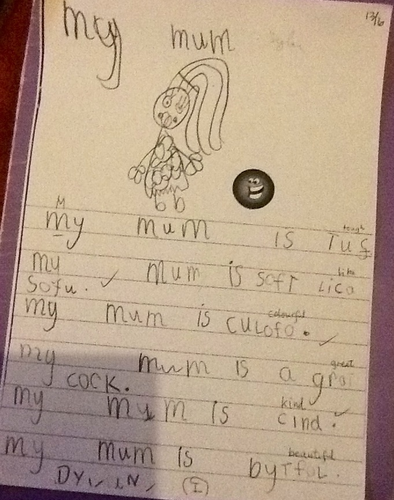 13/6
my mum
M tough
my mum is Tuf
like
my mum is soft Lica
sofu. ✓
colourful
my mum is culofo. ✓
great
my mum is a grat
cock.
kind ✓
my mum is cind.
beautiful
my mum is bytful.